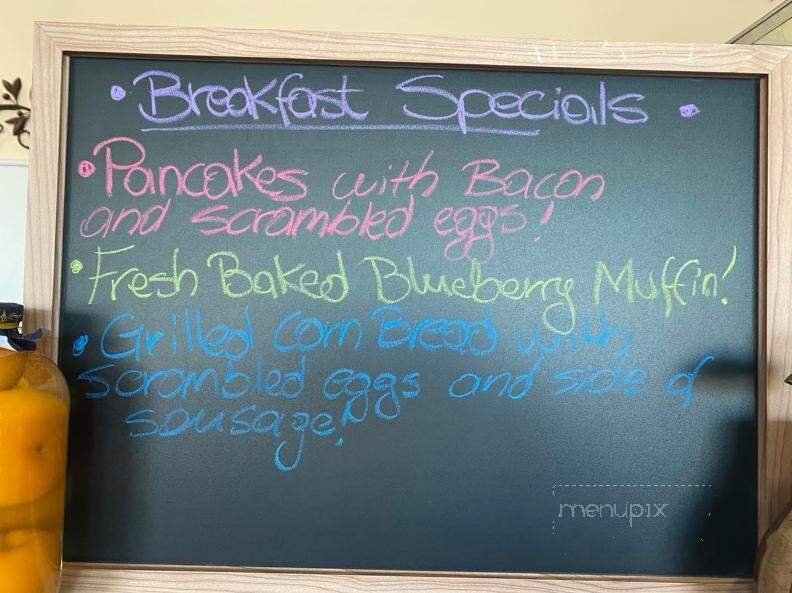 • Breakfast Specials •
• Pancakes with Bacon
and scrambled eggs!
• Fresh Baked Blueberry Muffin!
• Grilled Corn Bread with
scrambled eggs and side of
sausage!
menupix